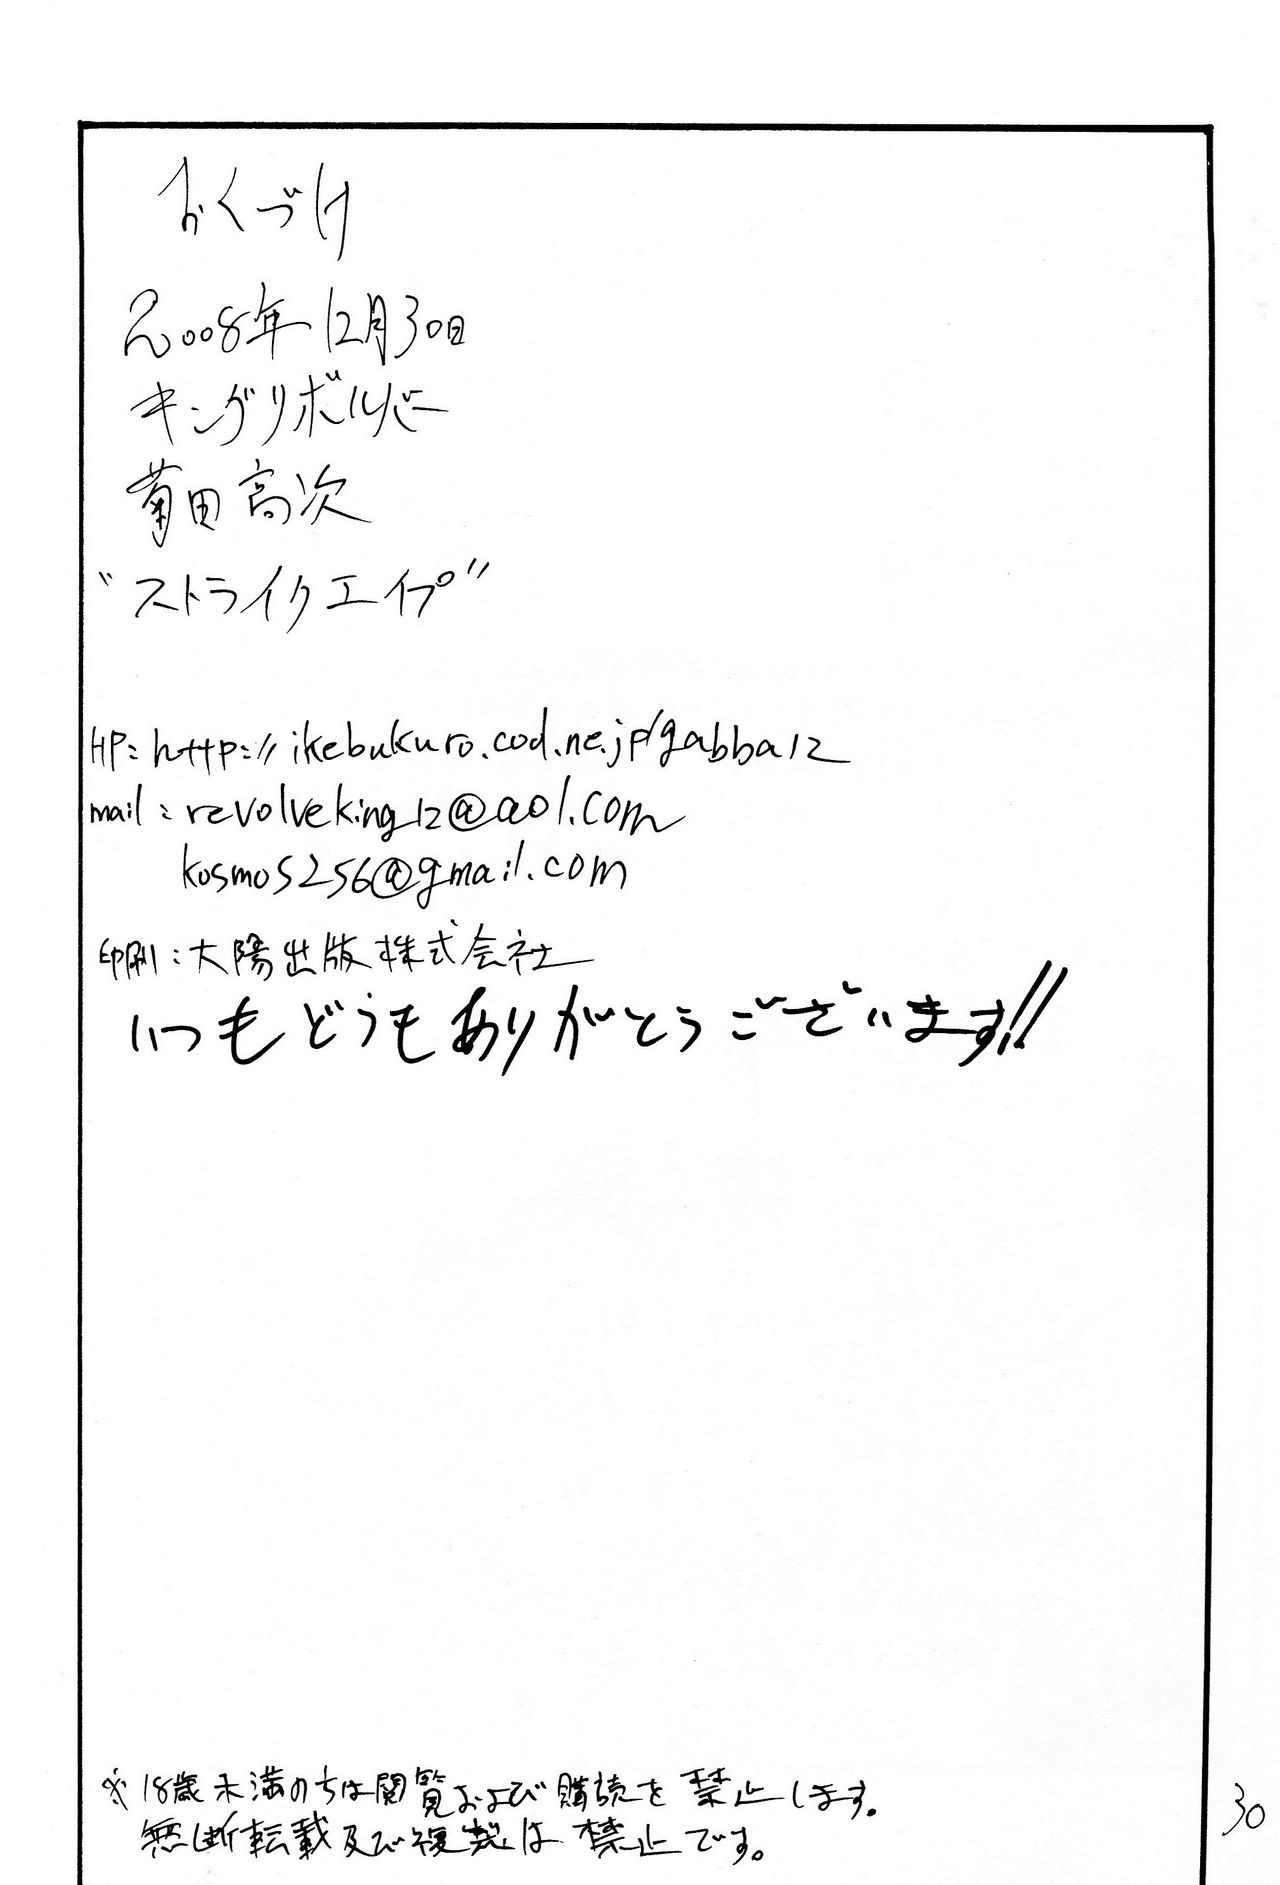 おくづけ
2008年12月30日
キングリボルバー
菊田高次
"ストライクエイプ"
HP:http://ikebukuro.cod.ne.jp/gabba12
mail:revolveking12@aol.com
kosmos256@gmail.com
印刷:大陽出版株式会社
いつもどうもありがとうございます!!
※18歳未満のちは閲覧および購読を禁止します。
無断転載及び複製は禁止です。
30